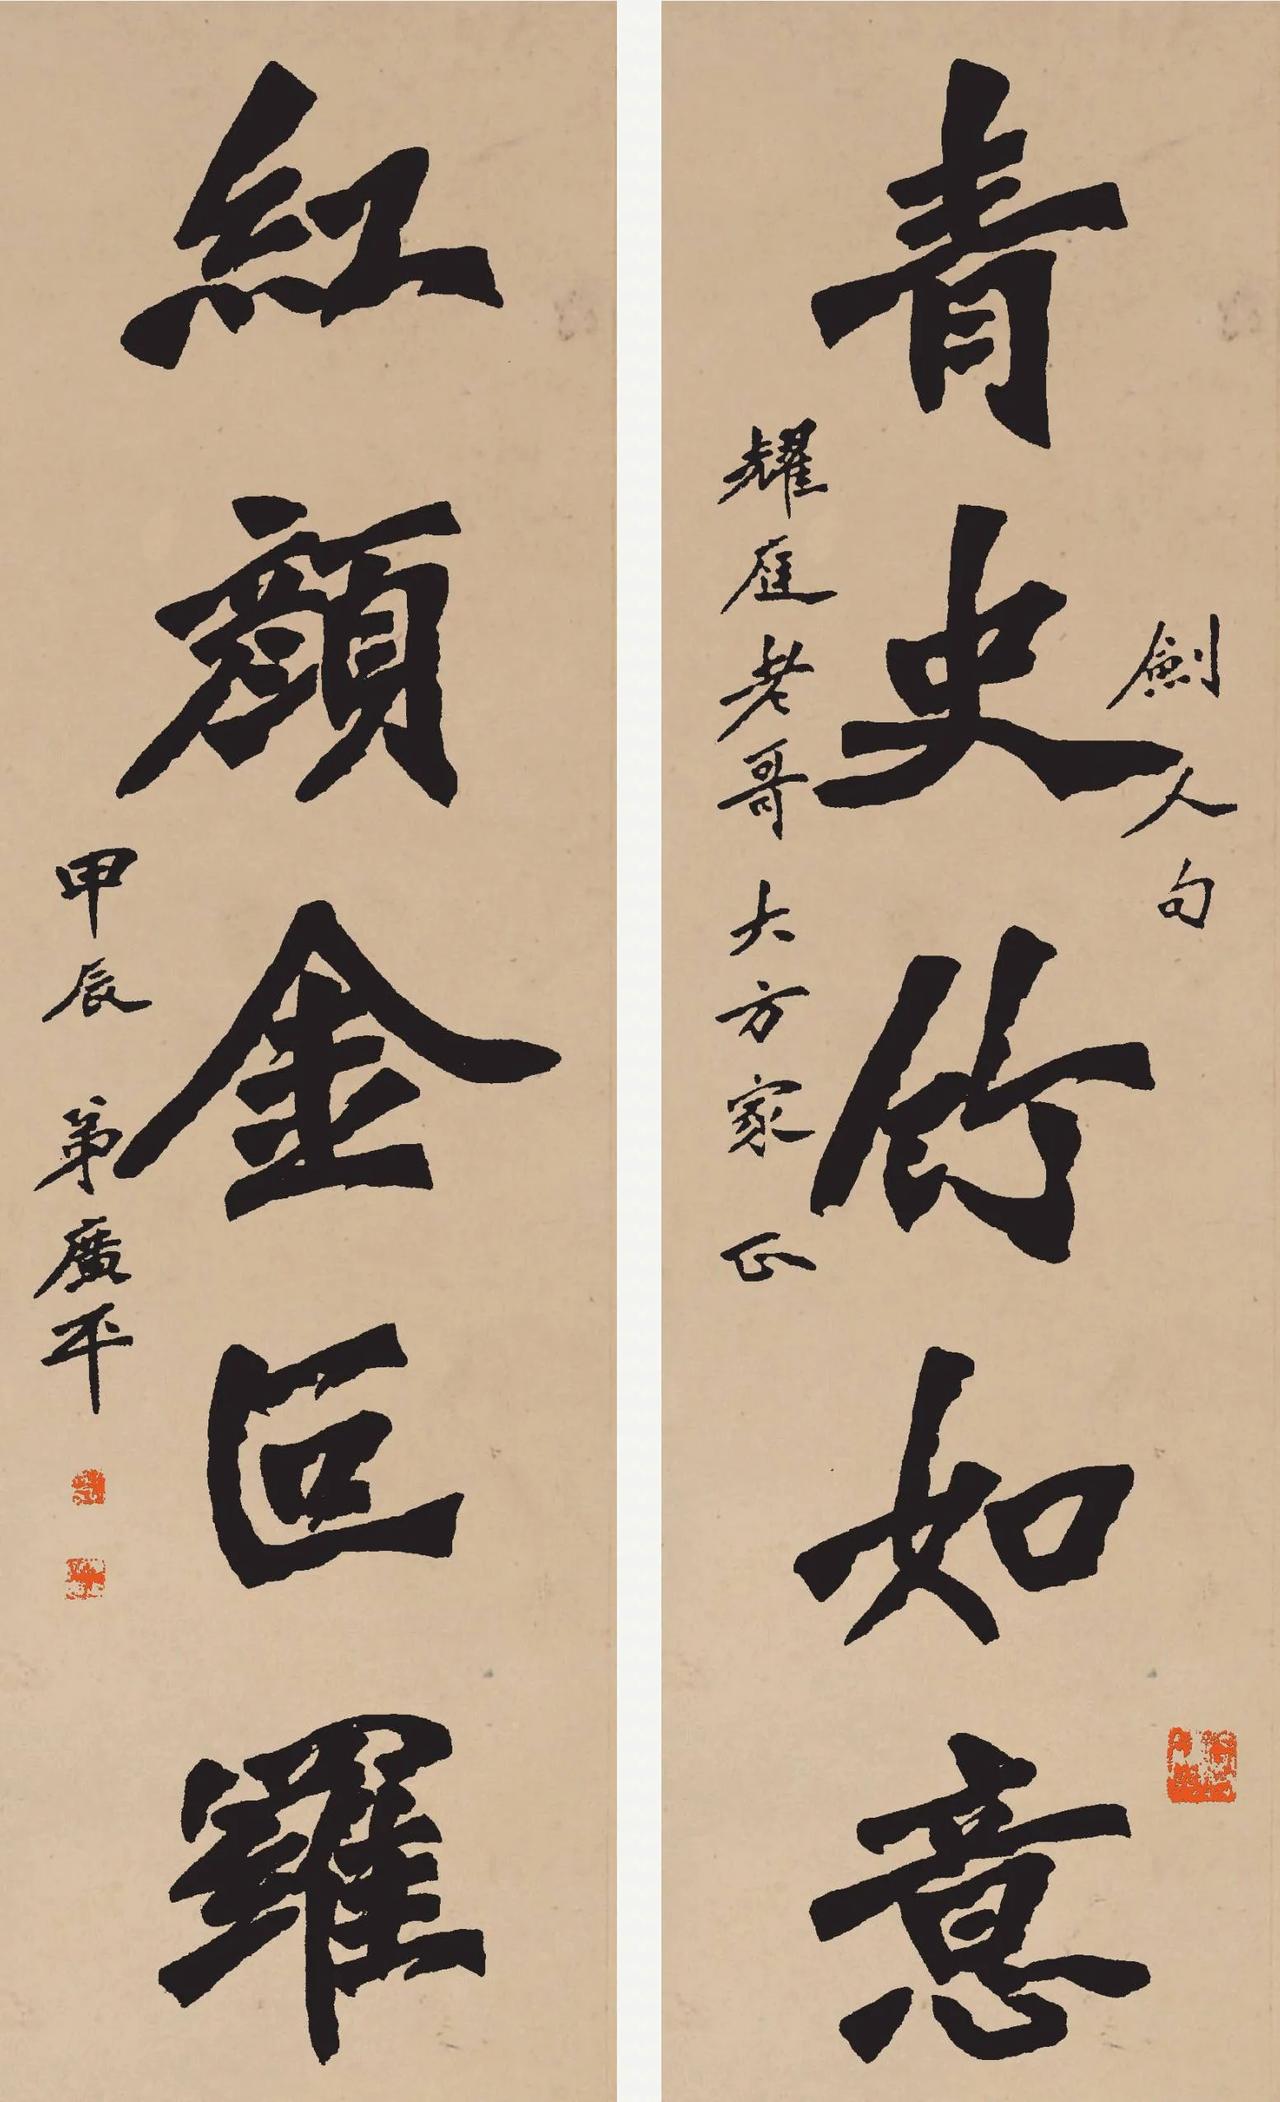 青史竹如意
劍人句
耀庭老哥大方家正
紅顏金叵羅
甲辰 弟廣平